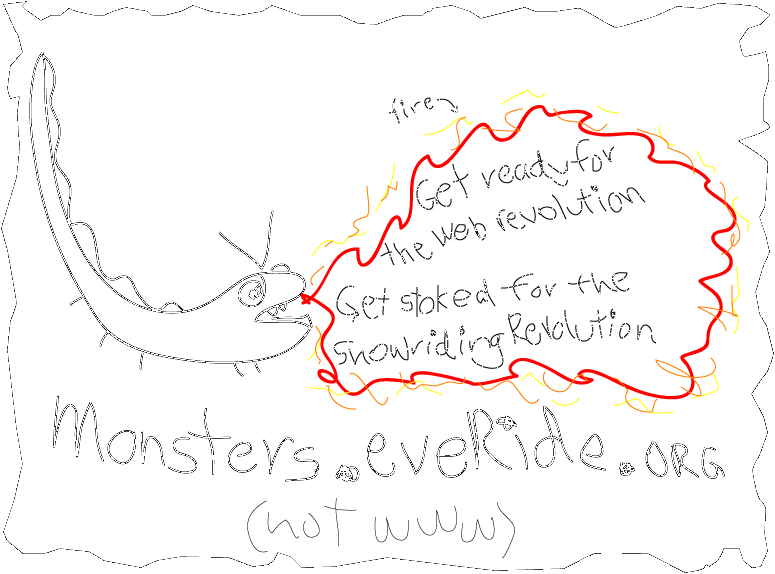 fire
Get ready for
the web revolution
Get stoked for the
snowriding Revolution
Monsters.eveRide.ORG
(not www)